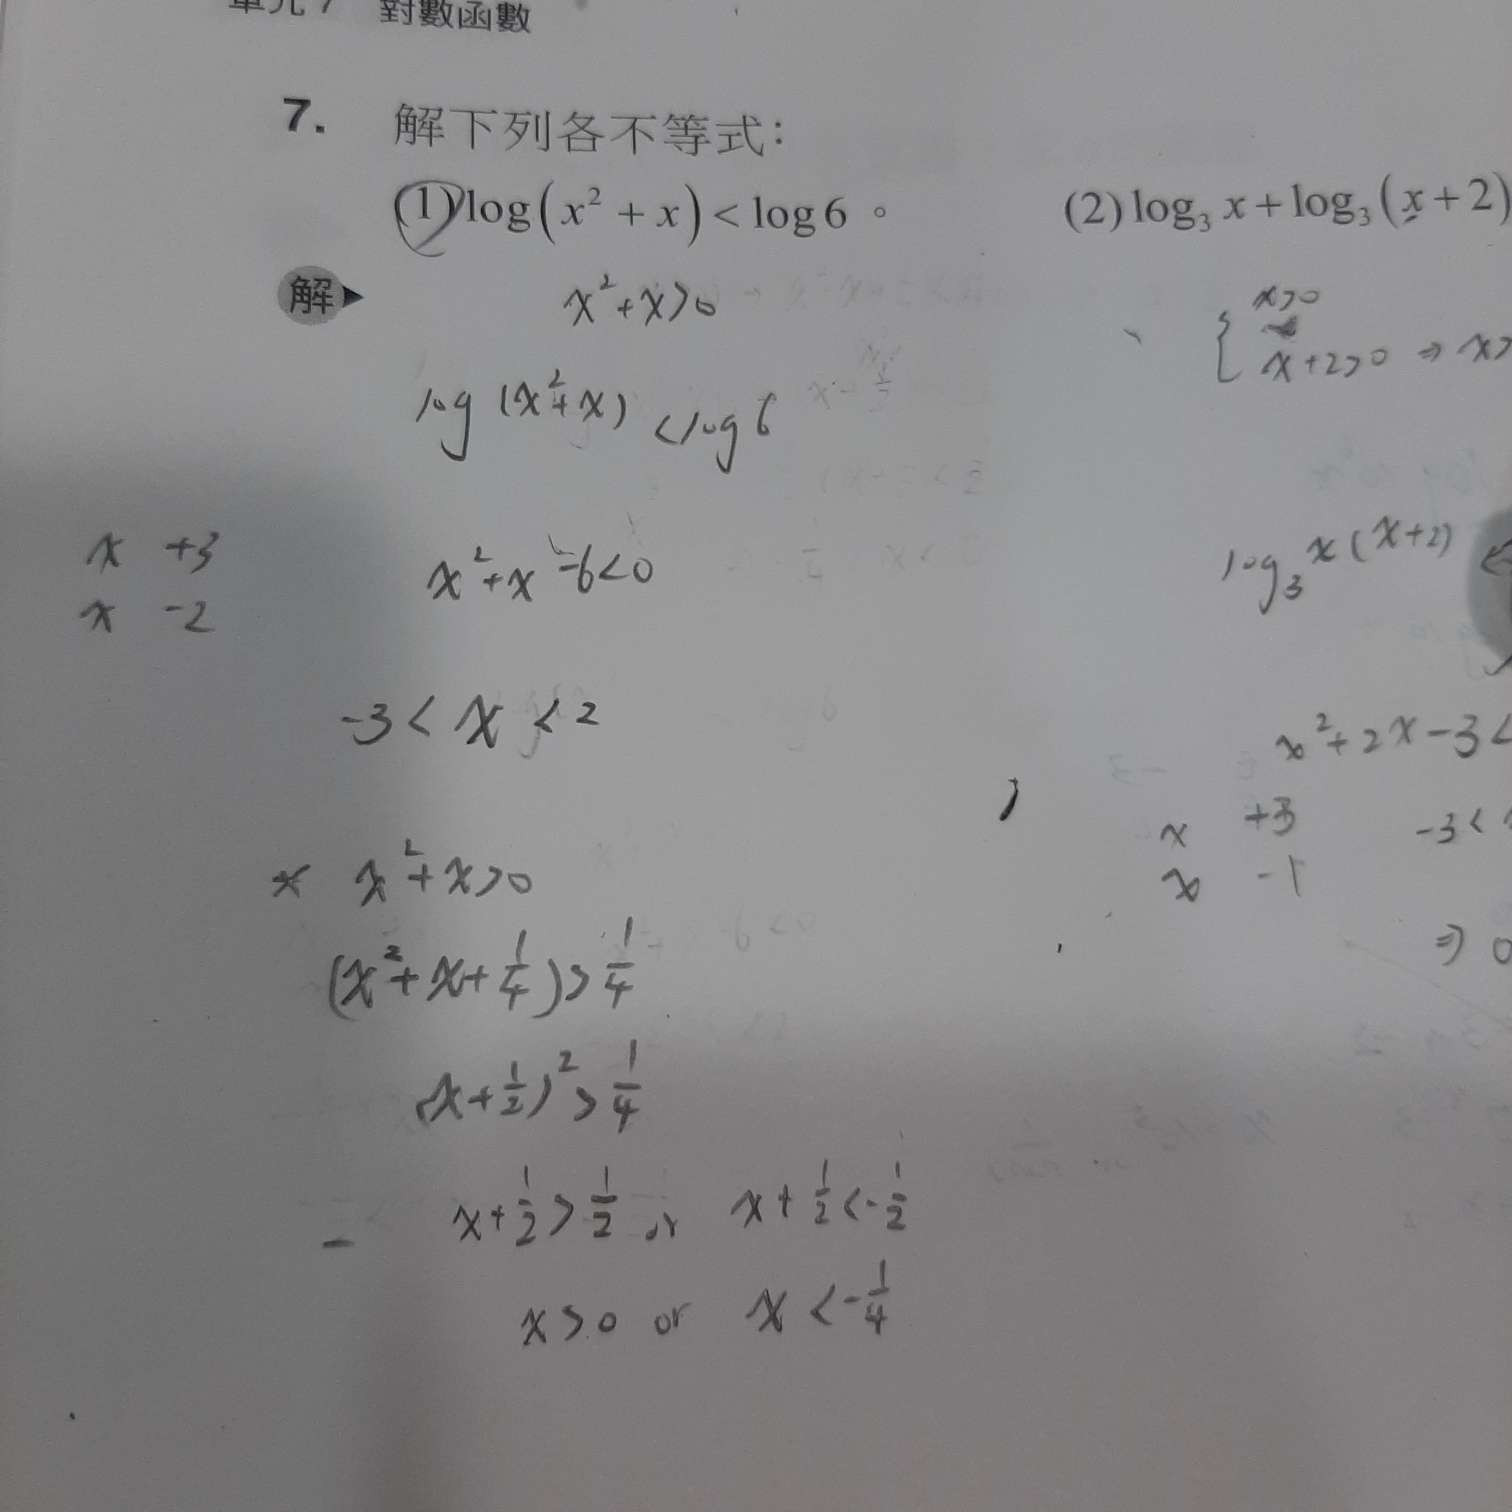 對數函數
7. 解下列各不等式：
(1) log(x² + x) < log 6 。
(2) log₃ x + log₃ (x + 2)
解▶
x² + x > 0
log (x² + x) < log 6
x +3
x -2
x² + x - 6 < 0
-3 < x < 2
* x² + x > 0
(x² + x + 1/4) > 1/4
(x + 1/2)² > 1/4
x + 1/2 > 1/2 or x + 1/2 < -1/2
x > 0 or x < -1/4
{ x > 0
x + 2 > 0 ⇒ x >
log₃ x (x + 2) <
x² + 2x - 3 <
x +3
x -1
-3 <
⇒ 0